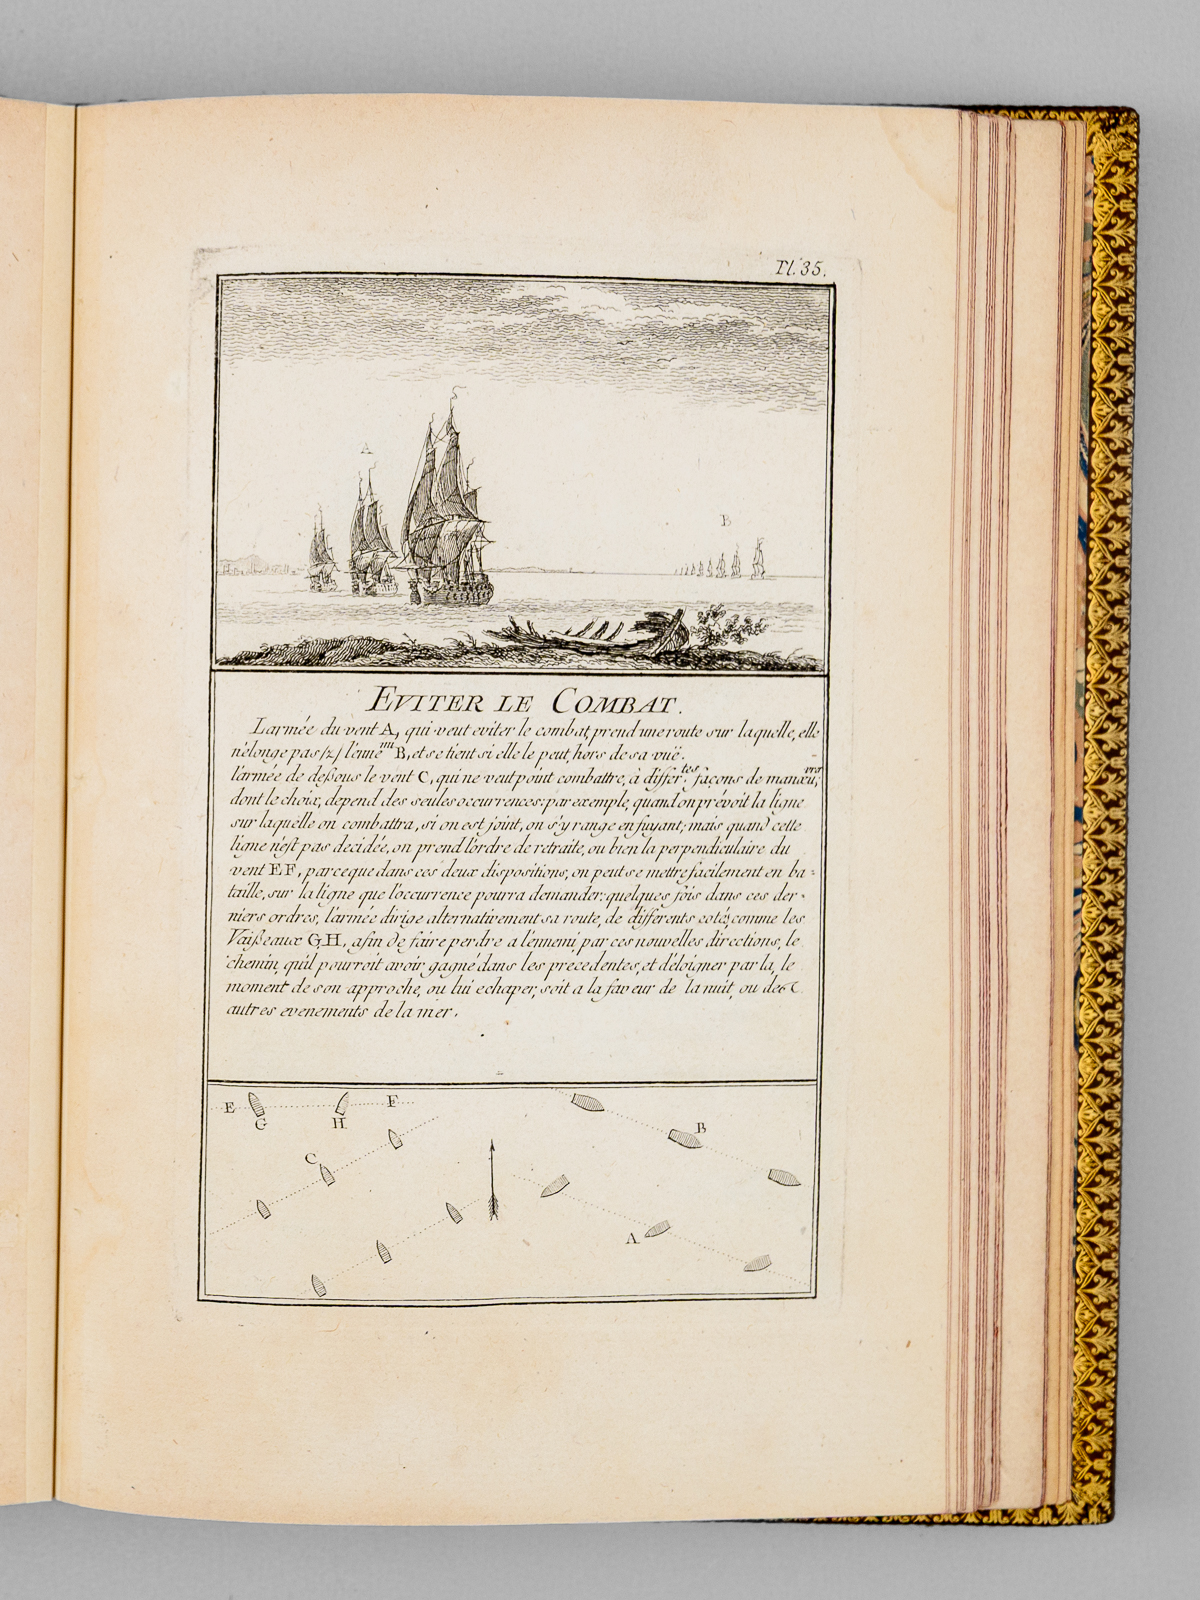 Pl. 35.
A
B
EVITER LE COMBAT.
L'armée du vent A, qui veut eviter le combat, prend une route sur laquelle, elle
n'élonge pas /2/ l'enne^mi B, et se tient si elle le peut, hors de sa vuë.
l'armée de deßous le vent C, qui ne veut point combattre, à differ^tes façons de manœu^vrer,
dont le choix, depend des seules occurrences: par exemple, quand on prévoit la ligne
sur laquelle on combattra, si on est joint, on s'y range en fuyant; mais quand cette
ligne n'est pas decidée, on prend l'ordre de retraite, ou bien la perpendiculaire du
vent EF, parceque dans ces deux dispositions, on peut se mettre facilement en ba=
taille, sur la ligne que l'occurrence pourra demander: quelques fois dans ces der-
niers ordres, l'armée dirige alternativement sa route, de differents cotés, comme les
Vaißeaux G.H, afin de faire perdre a l'ennemi, par ces nouvelles directions, le
chemin, qu'il pourroit avoir gagné dans les precedentes, et d'éloigner par la, le
moment de son approche, ou lui echaper, soit a la faveur de la nuit, ou des
autres evenements de la mer.
E G H F
C
B
A